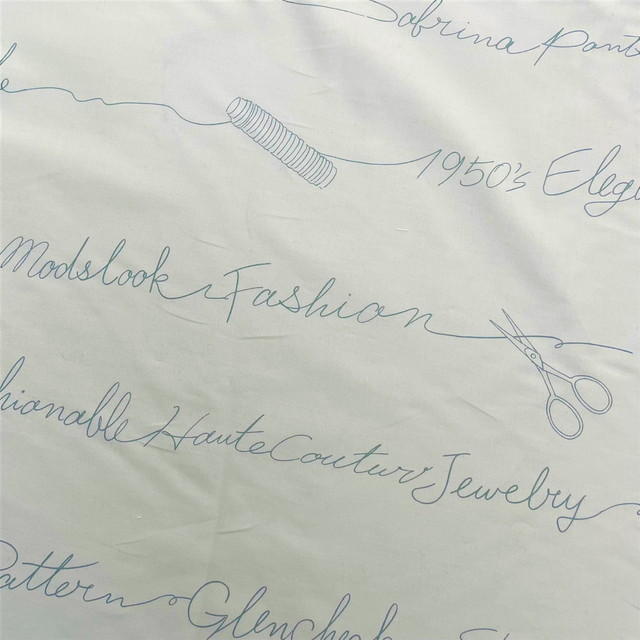 Sabrina Pants
1950's Eleg
Modslook Fashion
hionable Haute Coutur Jewelry
Pattern Glencheck